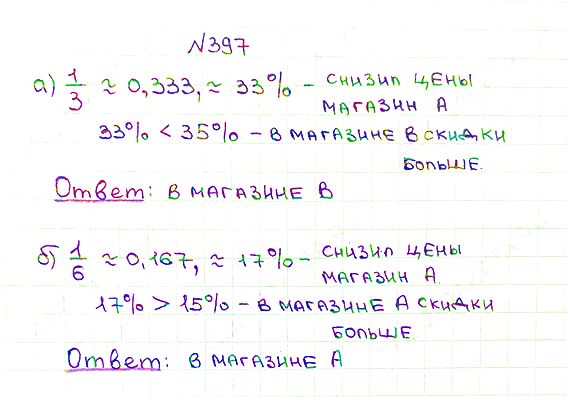 №397
а) 1/3 ≈ 0,333, ≈ 33% – снизил цены
магазин А
33% < 35% – в магазине В скидки
больше.
Ответ: в магазине В
б) 1/6 ≈ 0,167, ≈ 17% – снизил цены
магазин А.
17% > 15% – в магазине А скидки
больше.
Ответ: в магазине А